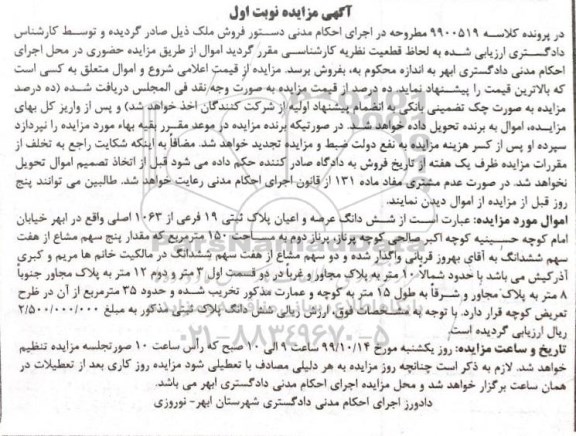 آگهی مزایده نوبت اول
در پرونده کلاسه ۹۹۰۰۵۱۹ مطروحه در اجرای احکام مدنی دستور فروش ملک ذیل صادر گردیده و توسط کارشناس
دادگستری ارزیابی شده به لحاظ قطعیت نظریه کارشناسی مقرر گردید اموال از طریق مزایده حضوری در محل اجرای
احکام مدنی دادگستری ابهر به اندازه محکوم به، بفروش برسد. مزایده از قیمت اعلامی شروع و اموال متعلق به کسی است
که بالاترین قیمت را پیشنهاد نماید. ده درصد از قیمت مزایده به صورت وجه نقد فی المجلس دریافت شده (ده درصد
مزایده به صورت چک تضمینی بانکی به انضمام پیشنهاد اولیه از شرکت کنندگان اخذ خواهد شد) و پس از واریز کل بهای
مزایده، اموال به برنده تحویل داده خواهد شد. در صورتیکه برنده مزایده در موعد مقرر بقیه بهاء مورد مزایده را نپردازد
سپرده او پس از کسر هزینه مزایده به نفع دولت ضبط و مزایده تجدید خواهد شد. مضافاً به اینکه شکایت راجع به تخلف از
مقررات مزایده ظرف یک هفته از تاریخ فروش به دادگاه صادر کننده حکم داده می شود قبل از اتخاذ تصمیم اموال تحویل
نخواهد شد. در صورت عدم مشتری مفاد ماده ۱۳۱ از قانون اجرای احکام مدنی رعایت خواهد شد. طالبین می توانند پنج
روز قبل از مزایده از اموال دیدن نمایند.
اموال مورد مزایده: عبارت است از شش دانگ عرصه و اعیان پلاک ثبتی ۱۹ فرعی از ۱۰۶۳ اصلی واقع در ابهر خیابان
امام کوچه حسینیه کوچه اکبر صالحی کوچه برناز، برناز دوم به مساحت ۱۵۰ مترمربع که مقدار پنج سهم مشاع از هفت
سهم ششدانگ به آقای بهروز قربانی واگذار شده و دو سهم مشاع از هفت سهم ششدانگ در مالکیت خانم ها مریم و کبری
آذرکیش می باشد با حدود شمالاً ۱۰ متر به پلاک مجاور و غرباً در دو قسمت اول ۳ متر و دوم ۱۲ متر به پلاک مجاور جنوباً
۸ متر به پلاک مجاور و شرقاً به طول ۱۵ متر به کوچه و عمارت مذکور تخریب شده و حدود ۳۵ مترمربع از آن در طرح
تعریض کوچه قرار دارد. با توجه به مشخصات فوق، ارزش ریالی شش دانگ پلاک ثبتی مذکور به مبلغ ۲/۵۰۰/۰۰۰/۰۰۰
ریال ارزیابی گردیده است.
تاریخ و ساعت مزایده: روز یکشنبه مورخ ۹۹/۱۰/۱۴ ساعت ۹ الی ۱۰ صبح که رأس ساعت ۱۰ صورتجلسه مزایده تنظیم
خواهد شد. لازم به ذکر است چنانچه روز مزایده به هر دلیلی مصادف با تعطیلی شود مزایده روز کاری بعد از تعطیلات در
همان ساعت برگزار خواهد شد و محل مزایده اجرای احکام مدنی دادگستری ابهر می باشد.
دادورز اجرای احکام مدنی دادگستری شهرستان ابهر- نوروزی
ParsNamadData
۰۲۱-۸۸۳۴۹۶۷۰-۵